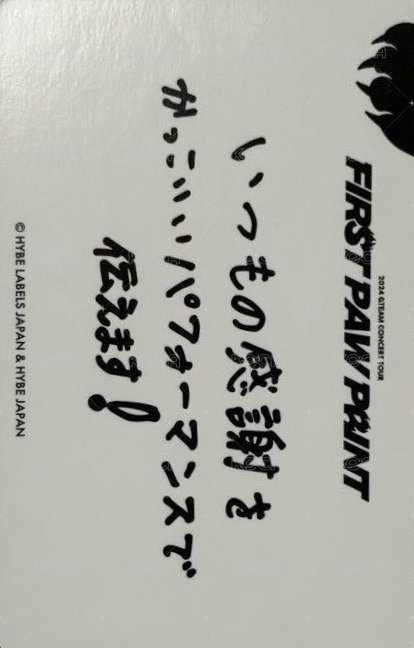 2024 &TEAM CONCERT TOUR
FIRST PAW PRINT
いつもの感謝を
かっこいいパフォーマンスで
伝えます!
© HYBE LABELS JAPAN & HYBE JAPAN